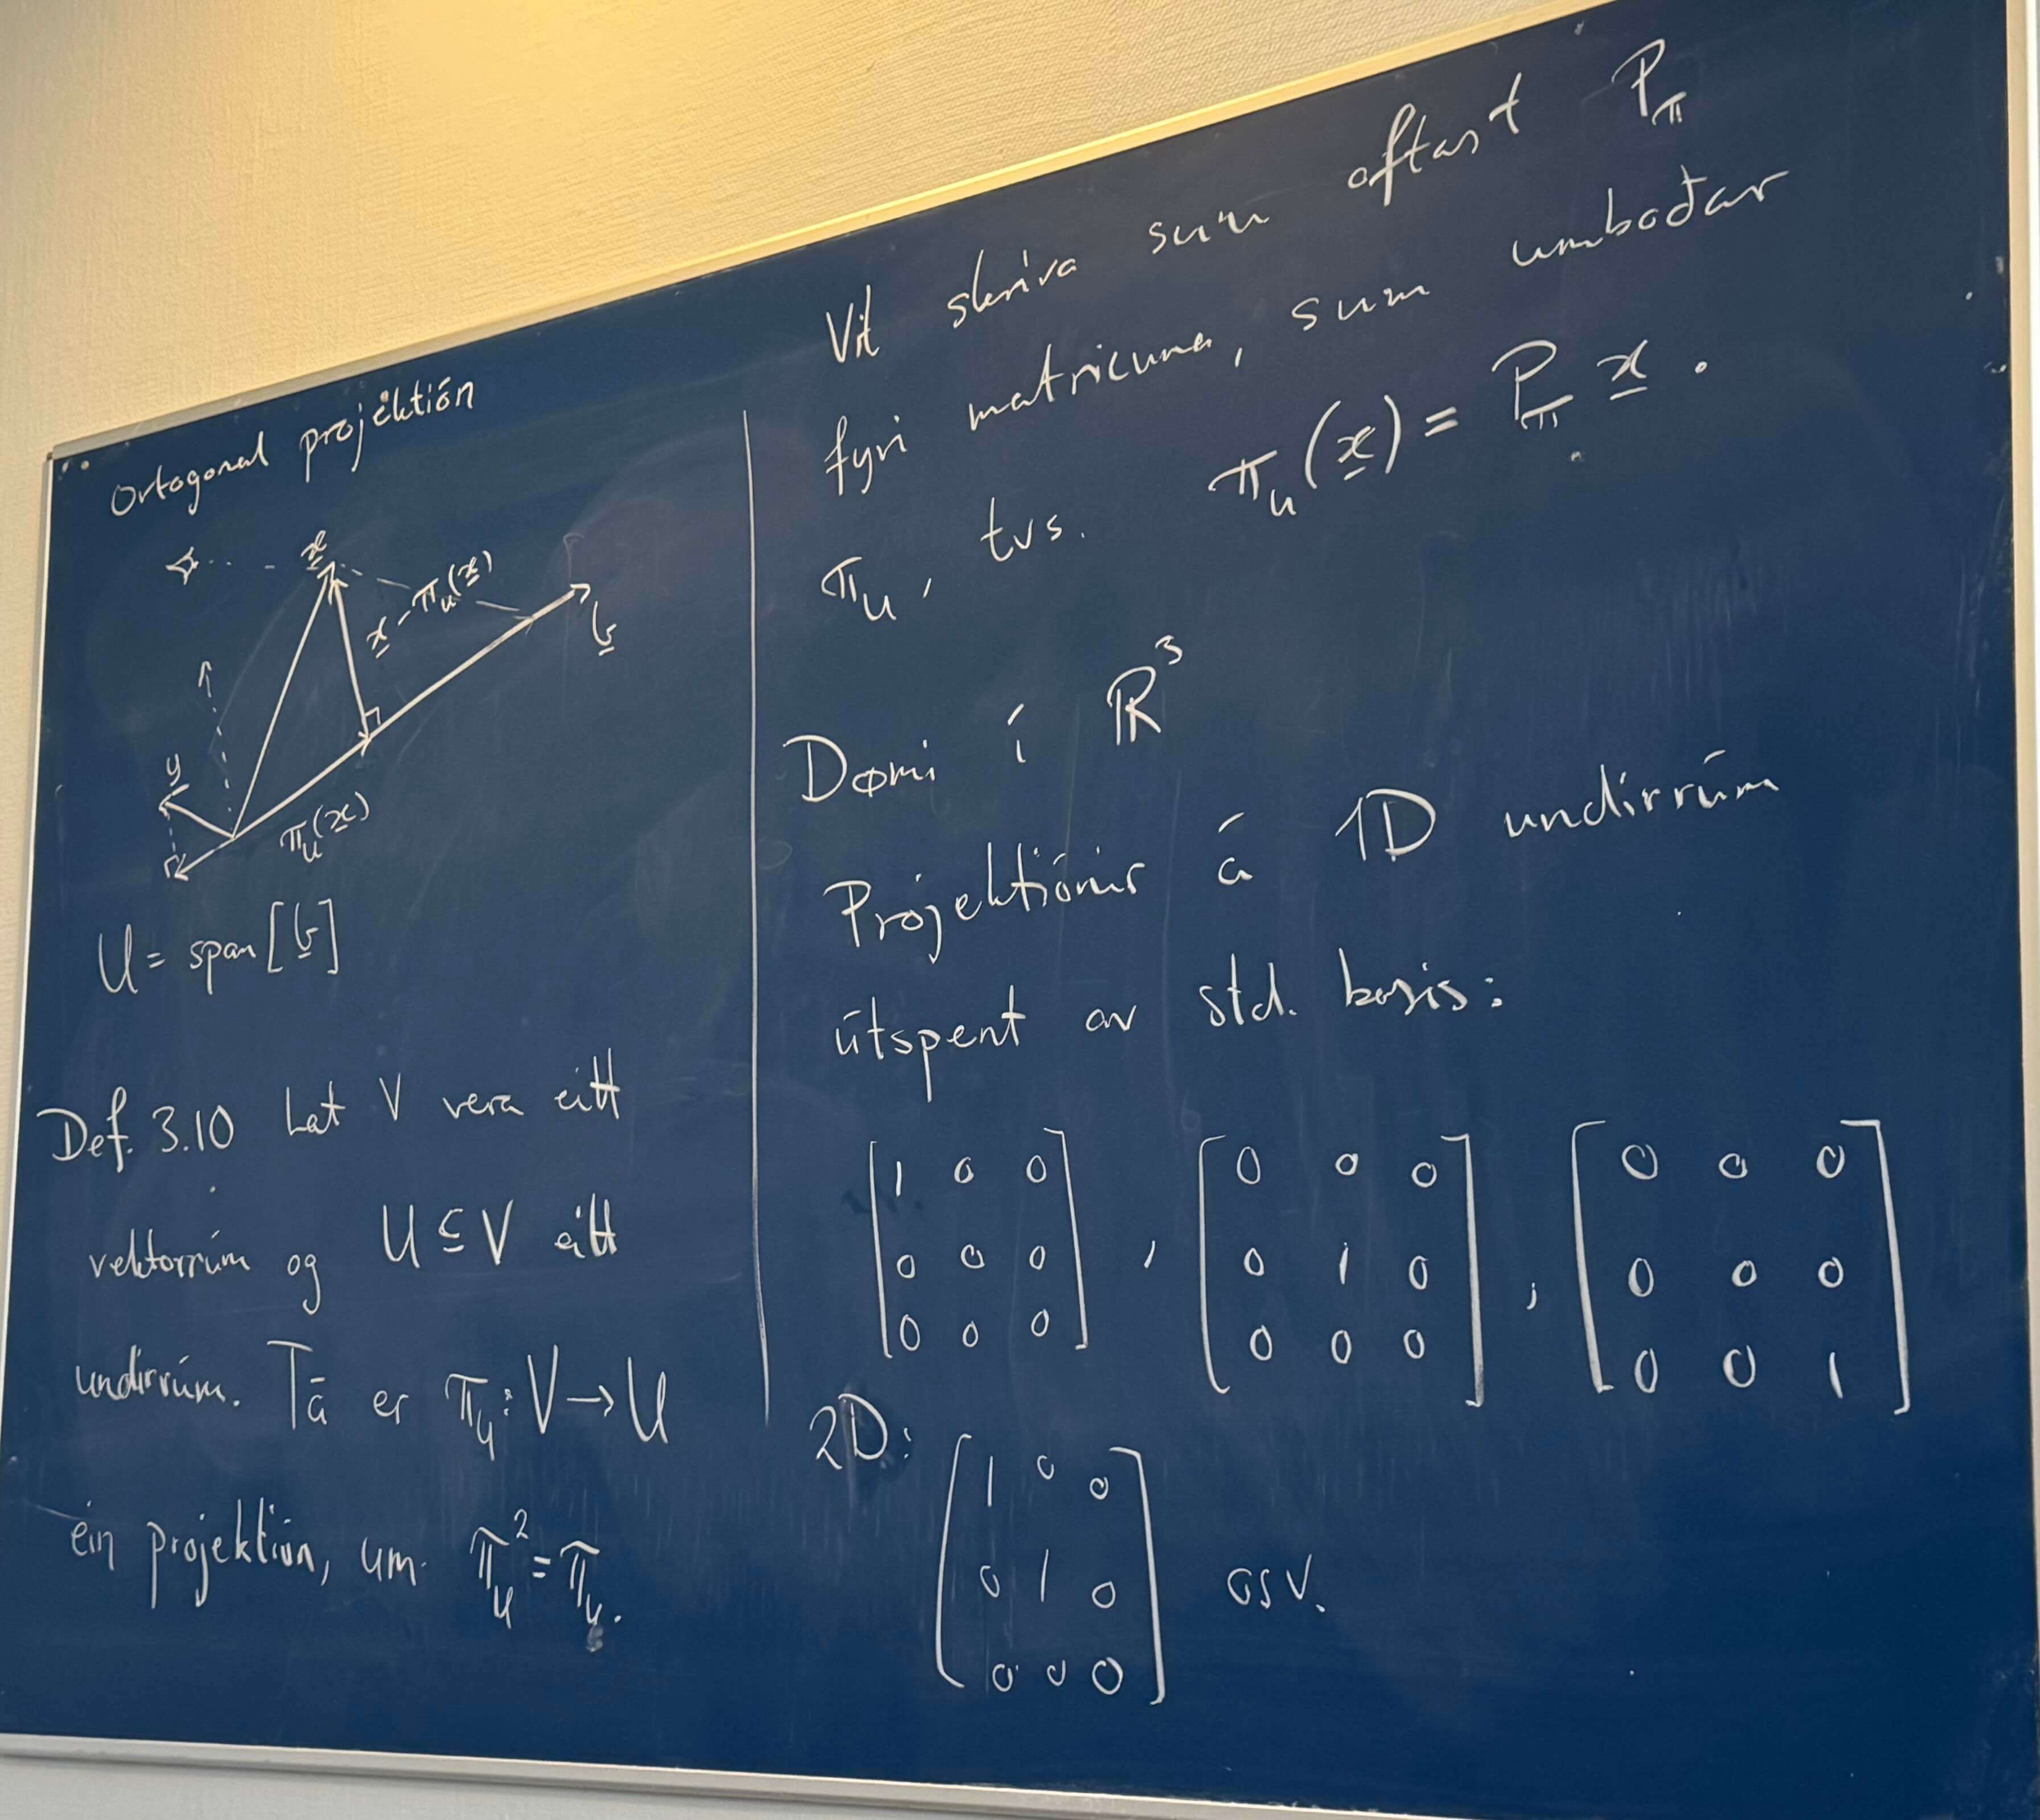 Ortogonal projektión
x
x - π_U(x)
b
y
π_U(x)
U = span[b]
Def. 3.10 Lat V vera eitt
vektorrúm og U ⊆ V eitt
undirrúm. Tá er π_U : V → U
ein projektión, um π_U² = π_U.
Vit skriva sum oftast P_π
fyri matricuna, sum umboðar
π_U, tvs. π_U(x) = P_π x.
Dømi í ℝ³
Projektiónir á 1D undirrúm
útspent av std. basis:
[1 0 0] , [0 0 0] , [0 0 0]
[0 0 0] , [0 1 0] , [0 0 0]
[0 0 0] , [0 0 0] , [0 0 1]
2D: [1 0 0]
[0 1 0] osv.
[0 0 0]